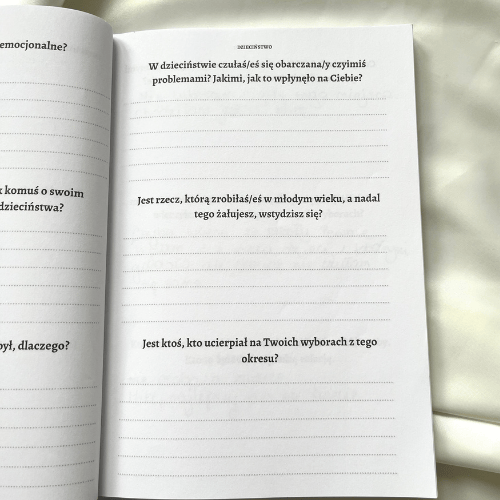 emocjonalne?
komuś o swoim
dzieciństwa?
był, dlaczego?
DZIECIŃSTWO
W dzieciństwie czułaś/eś się obarczana/y czyimiś
problemami? Jakimi, jak to wpłynęło na Ciebie?
Jest rzecz, którą zrobiłaś/eś w młodym wieku, a nadal
tego żałujesz, wstydzisz się?
Jest ktoś, kto ucierpiał na Twoich wyborach z tego
okresu?